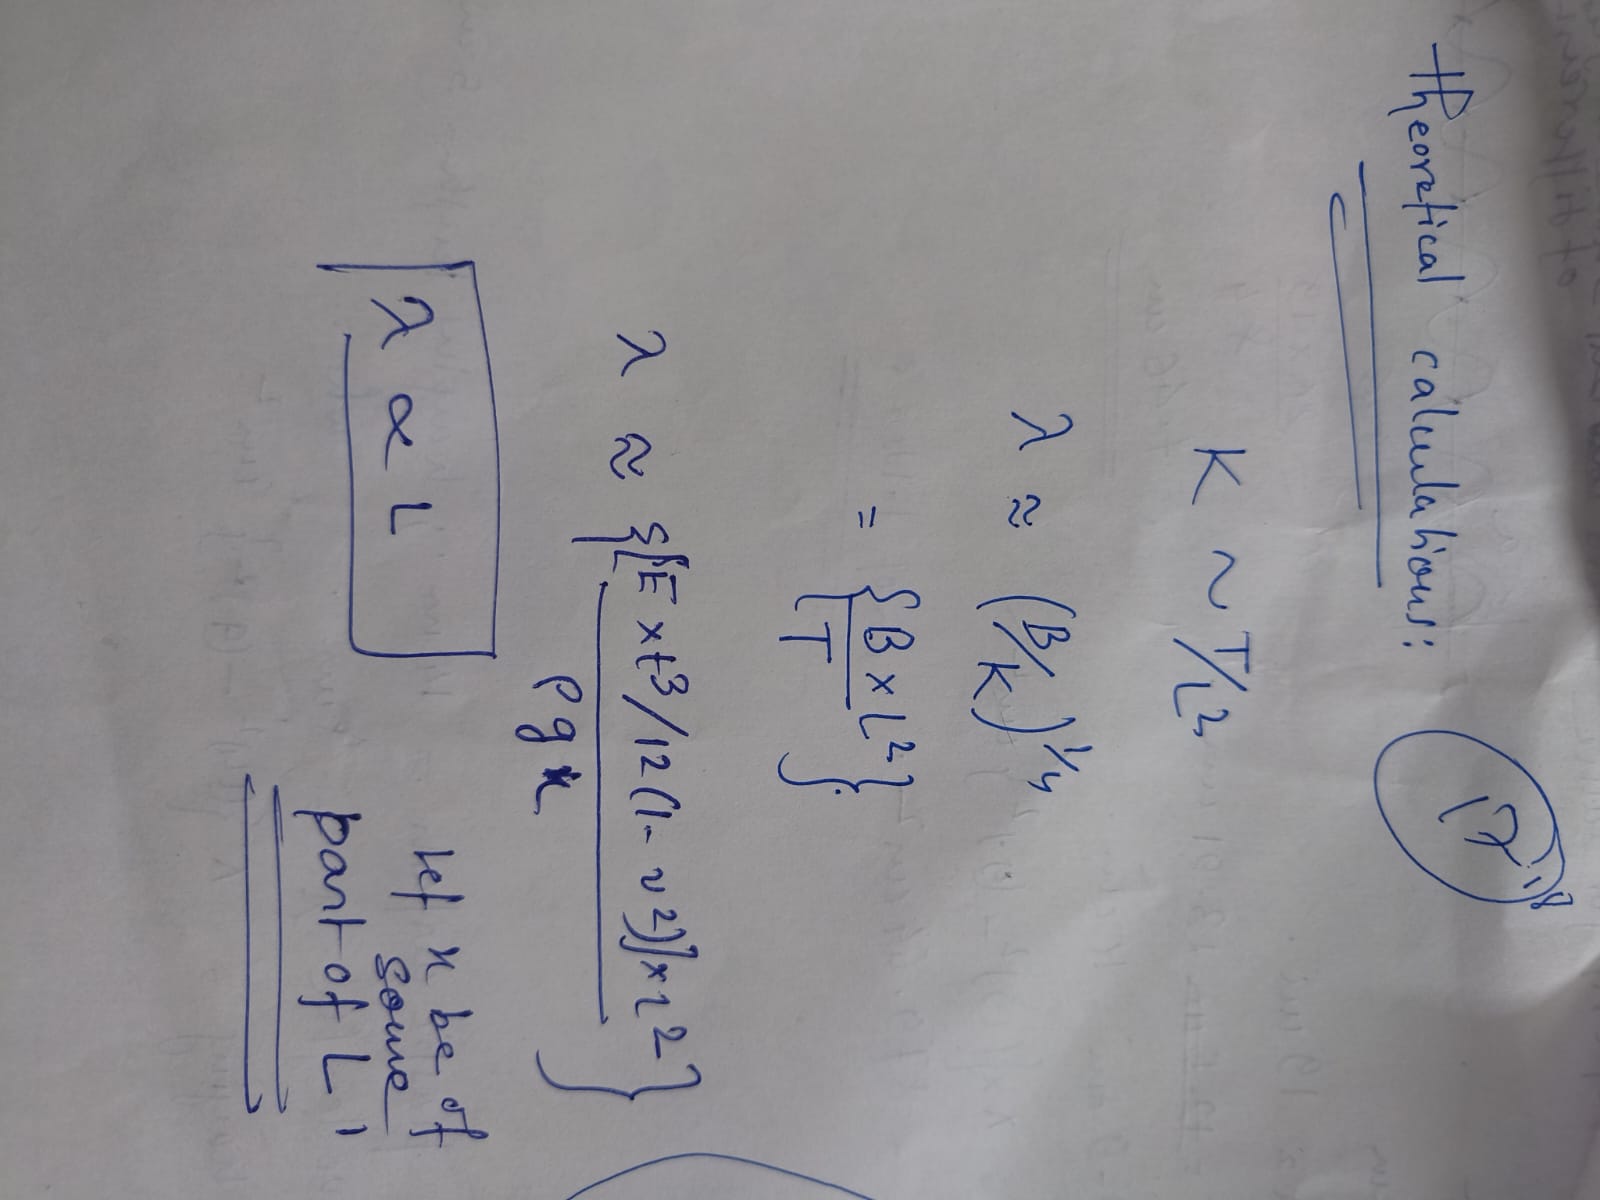 Theoretical calculations:
K ~ T/L²
λ ≈ (B/K)^1/4
= {B x L² / T}
λ ≈ {[E x t³/12(1-ν²)] x L² / ρgx}
λ α L
let x be of
some
part of L,